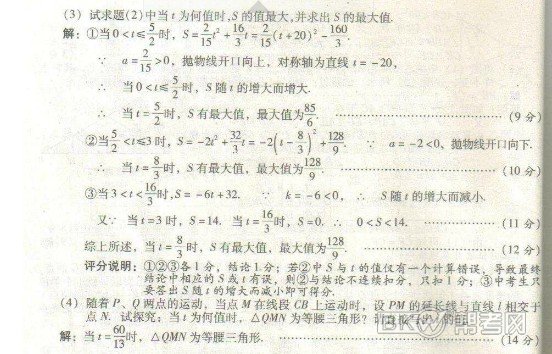 (3) 试求题(2)中当 t 为何值时,S 的值最大,并求出 S 的最大值.
解: ①当 0<t≤5/2 时, S=2/15t²+16/3t=2/15(t+20)²-160/3.
∵ a=2/15>0, 抛物线开口向上, 对称轴为直线 t=-20,
∴ 当 0<t≤5/2 时, S 随 t 的增大而增大.
∴ 当 t=5/2 时, S 有最大值, 最大值为 85/6. (9 分)
②当 5/2<t≤3 时, S=-2t²+32/3t=-2(t-8/3)²+128/9. ∵ a=-2<0, 抛物线开口向下.
∴ 当 t=8/3 时, S 有最大值, 最大值为 128/9. (10 分)
③当 3<t<16/3 时, S=-6t+32. ∵ k=-6<0, ∴ S 随 t 的增大而减小.
又∵ 当 t=3 时, S=14. 当 t=16/3 时, S=0. ∴ 0<S<14. (11 分)
综上所述, 当 t=8/3 时, S 有最大值, 最大值为 128/9. (12 分)
评分说明: ①②③各 1 分, 结论 1 分; 若②中 S 与 t 的值仅有一个计算错误, 导致最终
结论中相应的 S 或 t 有误, 则②与结论不连续扣分, 只扣 1 分; ③中考生只
要答出 S 随 t 的增大而减小即可得分.
(4) 随着 P、Q 两点的运动, 当点 M 在线段 CB 上运动时, 设 PM 的延长线与直线 l 相交于
点 N. 试探究: 当 t 为何值时, △QMN 为等腰三角形? 请直接写出 t 的值.
解: 当 t=60/13 时, △QMN 为等腰三角形. (14 分)